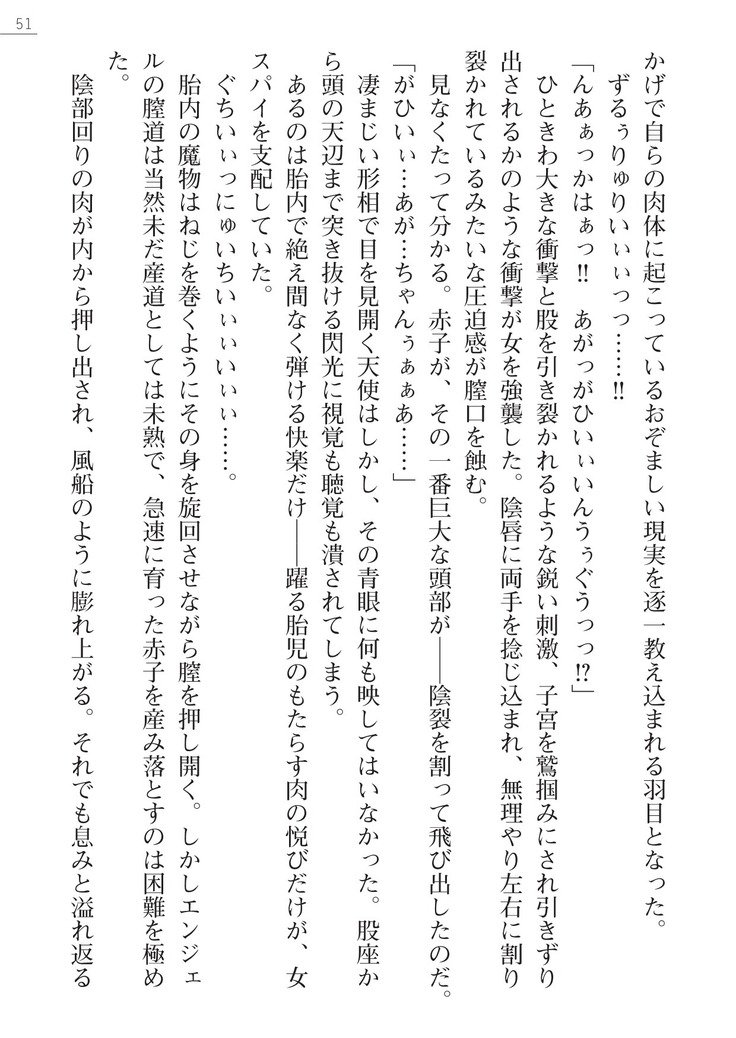 51
かげで自らの肉体に起こっているおぞましい現実を逐一教え込まれる羽目となった。
ずるぅりゅりぃぃぃっっ……!!
「んあぁっかはぁっ!!　あがっがひいぃいんうぅぐうっっ!?」
ひときわ大きな衝撃と股を引き裂かれるような鋭い刺激、子宮を鷲掴みにされ引きずり
出されるかのような衝撃が女を強襲した。陰唇に両手を捻じ込まれ、無理やり左右に割り
裂かれているみたいな圧迫感が膣口を蝕む。
見なくたって分かる。赤子が、その一番巨大な頭部が――陰裂を割って飛び出したのだ。
「がひいぃ…あが…ちゃんぅぁぁあ……」
凄まじい形相で目を見開く天使はしかし、その青眼に何も映してはいなかった。股座か
ら頭の天辺まで突き抜ける閃光に視覚も聴覚も潰されてしまう。
あるのは胎内で絶え間なく弾ける快楽だけ――躍る胎児のもたらす肉の悦びだけが、女
スパイを支配していた。
ぐちいぃぃっにゅいちいぃぃいぃぃ……。
胎内の魔物はねじを巻くようにその身を旋回させながら膣を押し開く。しかしエンジェ
ルの膣道は当然未だ産道としては未熟で、急速に育った赤子を産み落とすのは困難を極め
た。
陰部回りの肉が内から押し出され、風船のように膨れ上がる。それでも息みと溢れ返る